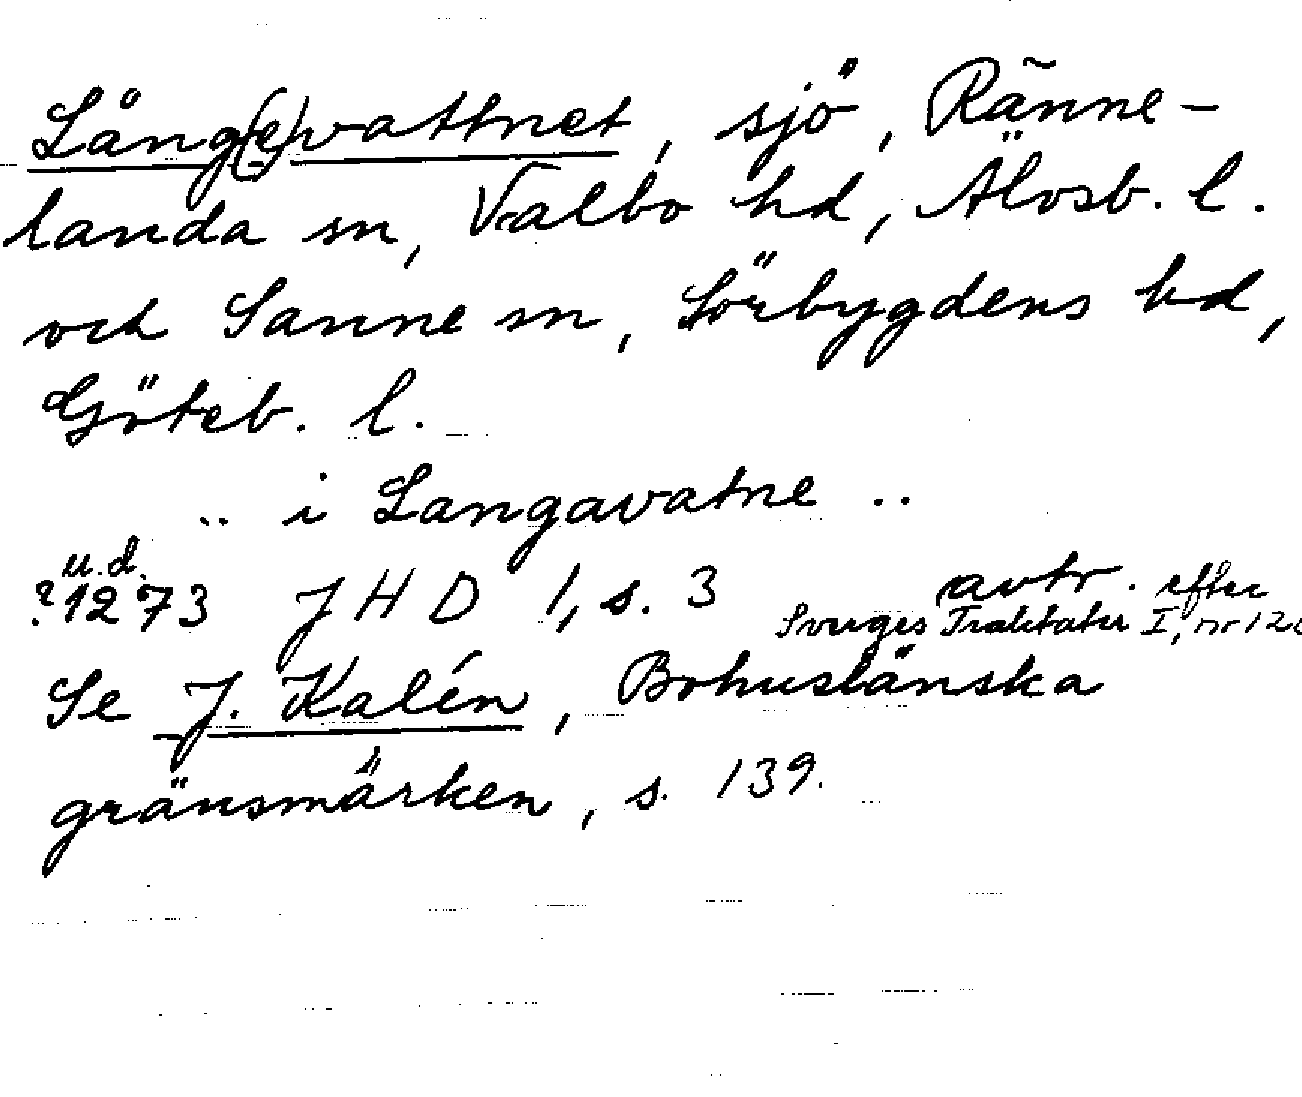 Lång(e)vattnet, sjö, Ränne-
landa sn, Valbo hd, Älvsb. l.
och Sanne sn, Sörbygdens hd,
Göteb. l.
.. i Langavatne ..
u.d.
?1273 JHD 1, s. 3 avtr. efter
Sveriges Traktater I, nr 12
Se J. Kalén, Bohuslänska
gränsmärken, s. 139.